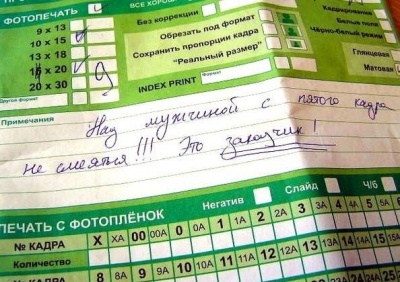 ВСЕ ХОРОШ
ФОТОПЕЧАТЬ
Без коррекции
Кадрирование
9 x 13
Обрезать под формат
Белые поля
10 x 15
Сохранить пропорции кадра
Чёрно-белый режим
13 x 18
"Реальный размер"
Глянцевая
15 x 20
Матовая
20 x 30
INDEX PRINT
Другой формат
Примечания
Над мужчиной с пятого кадра
не смеяться!!! Это заказчик!
Негатив Слайд Ч/б
ПЕЧАТЬ С ФОТОПЛЁНОК
№ КАДРА X XA 00 00A 0 0A 1 1A 2 2A 3 3A 4 4A 5 5A 6 6A
Количество
№ КАДРА 8 8A 9 9A 10 10A 11 11A 12 12A 13 13A 14 14A 15 15A